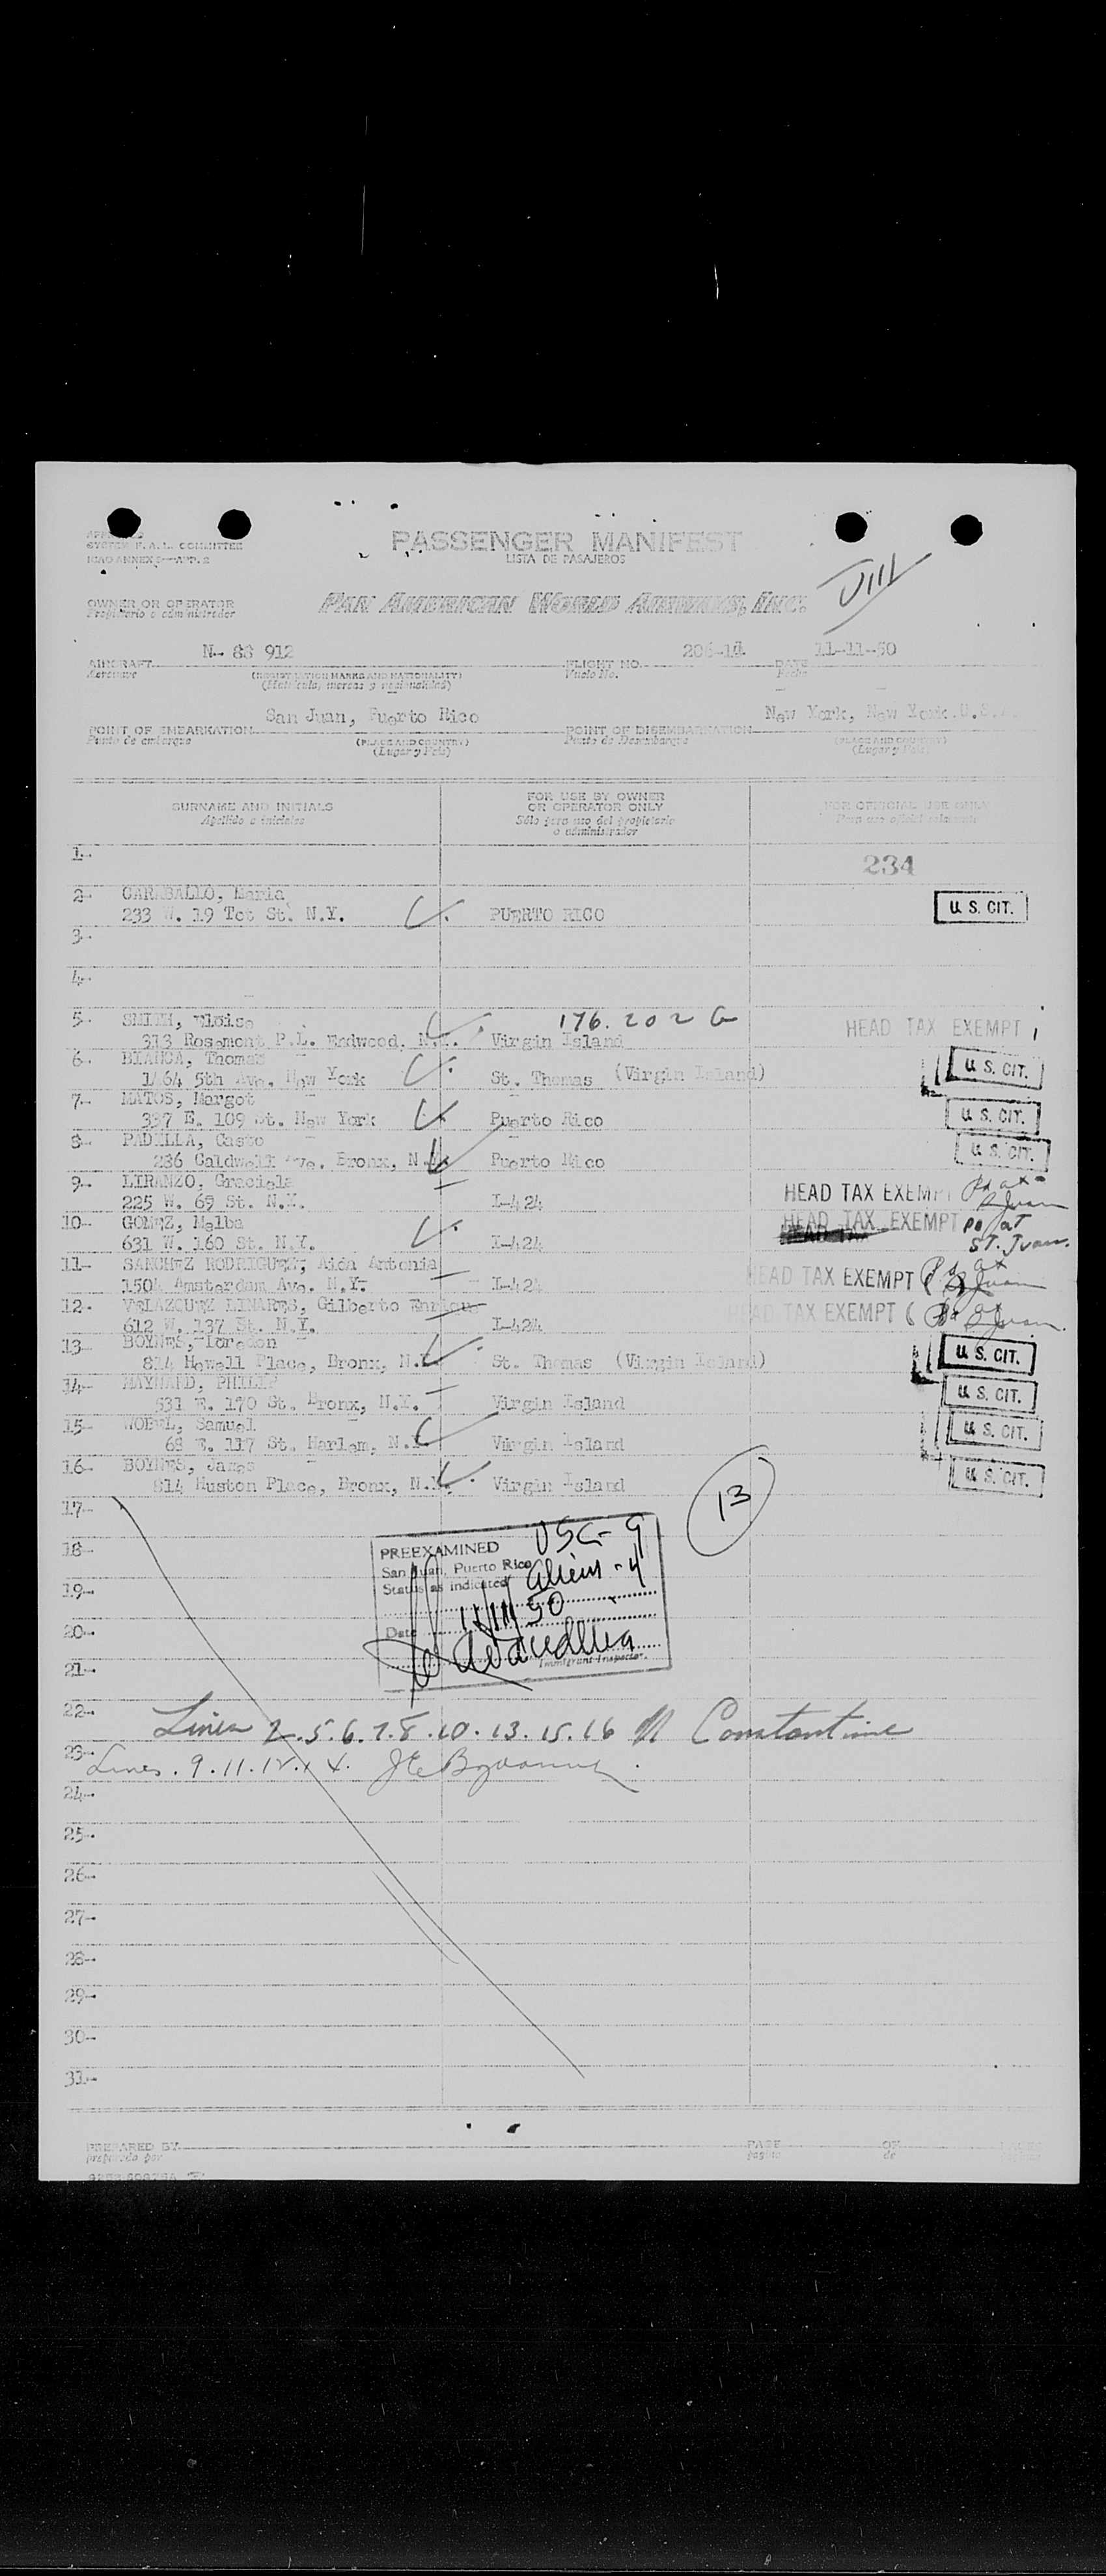 SYSTEM F. A. L. COMMITTEE
ICAO ANNEX 9—APP. 2
PASSENGER MANIFEST
LISTA DE PASAJEROS
VIII
OWNER OR OPERATOR
Propietario o administrador
PAN AMERICAN WORLD AIRWAYS, INC.
N- 88 912
11-11-50
AIRCRAFT
Aeronave
(REGISTRATION MARKS AND NATIONALITY)
(Matrícula, marcas y nacionalidad)
FLIGHT NO.
Vuelo No.
DATE
Fecha
San Juan, Puerto Rico
New York, New York.U.S.A.
POINT OF EMBARKATION
Punto de embarque
(PLACE AND COUNTRY)
(Lugar y País)
POINT OF DISEMBARKATION
Punto de Desembarque
(PLACE AND COUNTRY)
(Lugar y País)
SURNAME AND INITIALS
Apellido e iniciales
FOR USE BY OWNER
OR OPERATOR ONLY
Sólo para uso del propietario
o administrador
FOR OFFICIAL USE ONLY
Para uso oficial solamente
1-
234
2- CARABALLO, Maria
233 W. 19 Tct St. N.Y. PUERTO RICO U. S. CIT.
3-
4-
5- SMITH, Eloise 176.202 G HEAD TAX EXEMPT
313 Rosemont P.L. Virgin Island
6- BIANCA, Thomas
1464 5th Ave. New York St. Thomas (Virgin Island) U. S. CIT.
7- MATOS, Margot
337 E. 109 St. New York Puerto Rico U. S. CIT.
8- PADILLA, Casto
236 Caldwell Ave. Bronx, N.Y. Puerto Rico U. S. CIT.
9- LIRANZO, Graciela
225 W. 69 St. N.Y. I-424 HEAD TAX EXEMPT
10- GOMEZ, Melba
631 W. 160 St. N.Y. I-424 HEAD TAX EXEMPT pd at
ST. Juan.
11- SANCHEZ RODRIGUEZ, Aida Antonia
1504 Amsterdam Ave. N.Y. I-424 HEAD TAX EXEMPT
12- VELAZQUEZ LINARES, Gilberto
612 W. 137 St. N.Y. I-424 HEAD TAX EXEMPT
13- BOYNES,
814 Howell Place, Bronx, N.Y. St. Thomas (Virgin Island) U. S. CIT.
14- MAYNARD, PHILIP
531 E. 170 St. Bronx, N.Y. Virgin Island U. S. CIT.
15- Samuel
68 E. 117 St. Harlem, N.Y. Virgin Island U. S. CIT.
16- BOYNES, James
814 Huston Place, Bronx, N.Y. Virgin Island U. S. CIT.
17-
13
18-
PREEXAMINED USC-9
San Juan, Puerto Rico
Status as indicated Aliens-4
19-
Date 11/11/50
20-
Immigrant Inspector.
21-
22-
Lines 2.5.6.7.8.10.13.15.16 Constantine
23-
Lines. 9.11.12.14.
24-
25-
26-
27-
28-
29-
30-
31-
PREPARED BY
preparado por
PAGE
pagina
OF
de